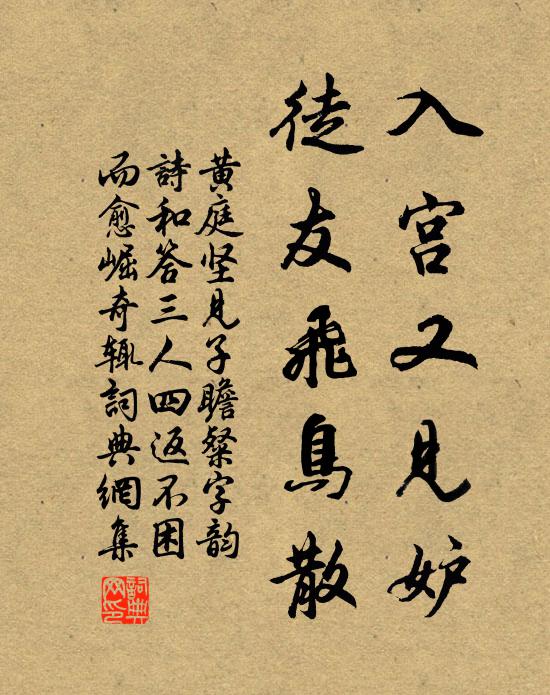 入宫又见妒
徒友飛鳥散
黄庭坚見子瞻粲字韵
詩和答三人四返不困
而愈崛奇輒詞典網集
詞典网印